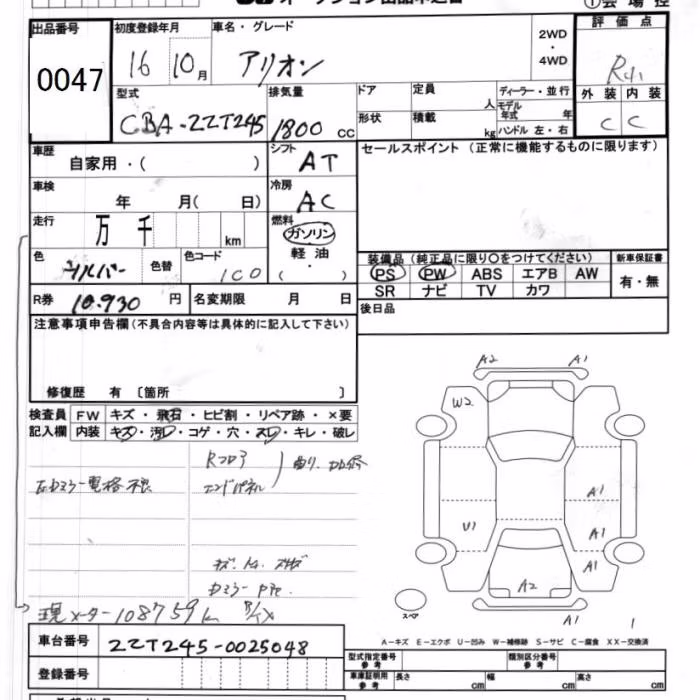 ① 会 場 控
出品番号
0047
初度登録年月
16 10月
車名・グレード
アリオン
2WD
・
4WD
評 価 点
外 装 内 装
C C
型式
CBA-ZZT245
排気量
1800 CC
ドア
形状
定員 人
積載 kg
ディーラー・並行
モデル年式 年
ハンドル 左・右
車歴
自家用・( )
シフト
AT
セールスポイント (正常に機能するものに限ります)
車検
年 月( 日)
冷房
AC
走行
万 千 km
燃料
ガソリン
軽 油
・
( )
色
シルバー
色替
色コード
1C0
装備品 (純正品に限り○をつけてください)
PS PW ABS エアB AW
SR ナビ TV カワ
新車保証書
有・無
R券 10.930 円
名変期限 月 日
後日品
注意事項申告欄(不具合内容等は具体的に記入して下さい)
修復歴 有 〔箇所 〕
検査員
記入欄
FW キズ・飛石・ヒビ割・リペア跡・×要
内装 キズ・汚レ・コゲ・穴・スレ・キレ・破レ
エンドパネル
現メーター108759km
A2 A1
W2
A1
U1 A1
A1
A2
A1
スペア
A-キズ E-エクボ U-凹み W-補修跡 S-サビ C-腐食 XX-交換済
車台番号 ZZT245-0025048
登録番号
型式指定番号
参 考
類別区分番号
参 考
車庫証明用
参 考
長さ cm
幅 cm
高さ cm